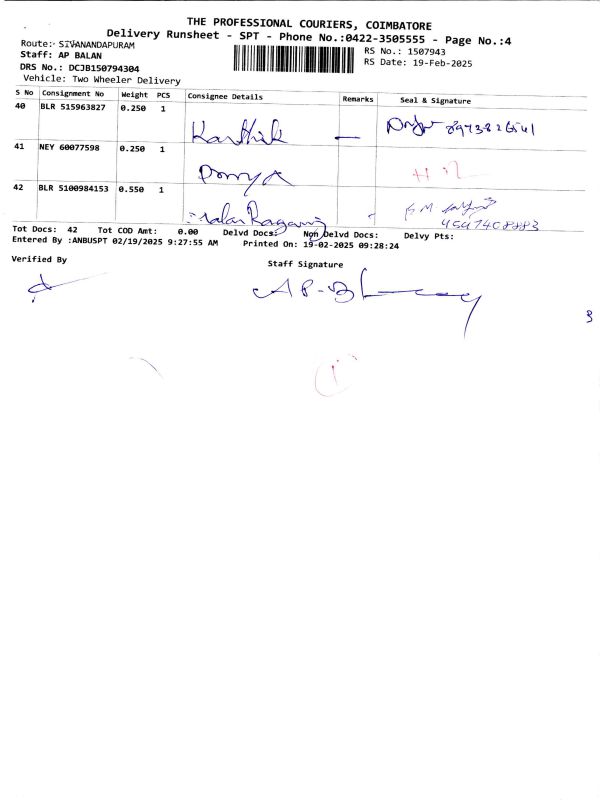 THE PROFESSIONAL COURIERS, COIMBATORE
Delivery Runsheet - SPT - Phone No.:0422-3505555 - Page No.:4
Route:- SIVANANDAPURAM
RS No.: 1507943
Staff: AP BALAN
RS Date: 19-Feb-2025
DRS No.: DCJB150794304
Vehicle: Two Wheeler Delivery
S No Consignment No Weight PCS Consignee Details Remarks Seal & Signature
40 BLR 515963827 0.250 1 Karthik
41 NEY 60077598 0.250 1
42 BLR 5100984153 0.550 1
Tot Docs: 42 Tot COD Amt: 0.00 Delvd Docs: Non Delvd Docs: Delvy Pts:
Entered By :ANBUSPT 02/19/2025 9:27:55 AM Printed On: 19-02-2025 09:28:24
Verified By
Staff Signature